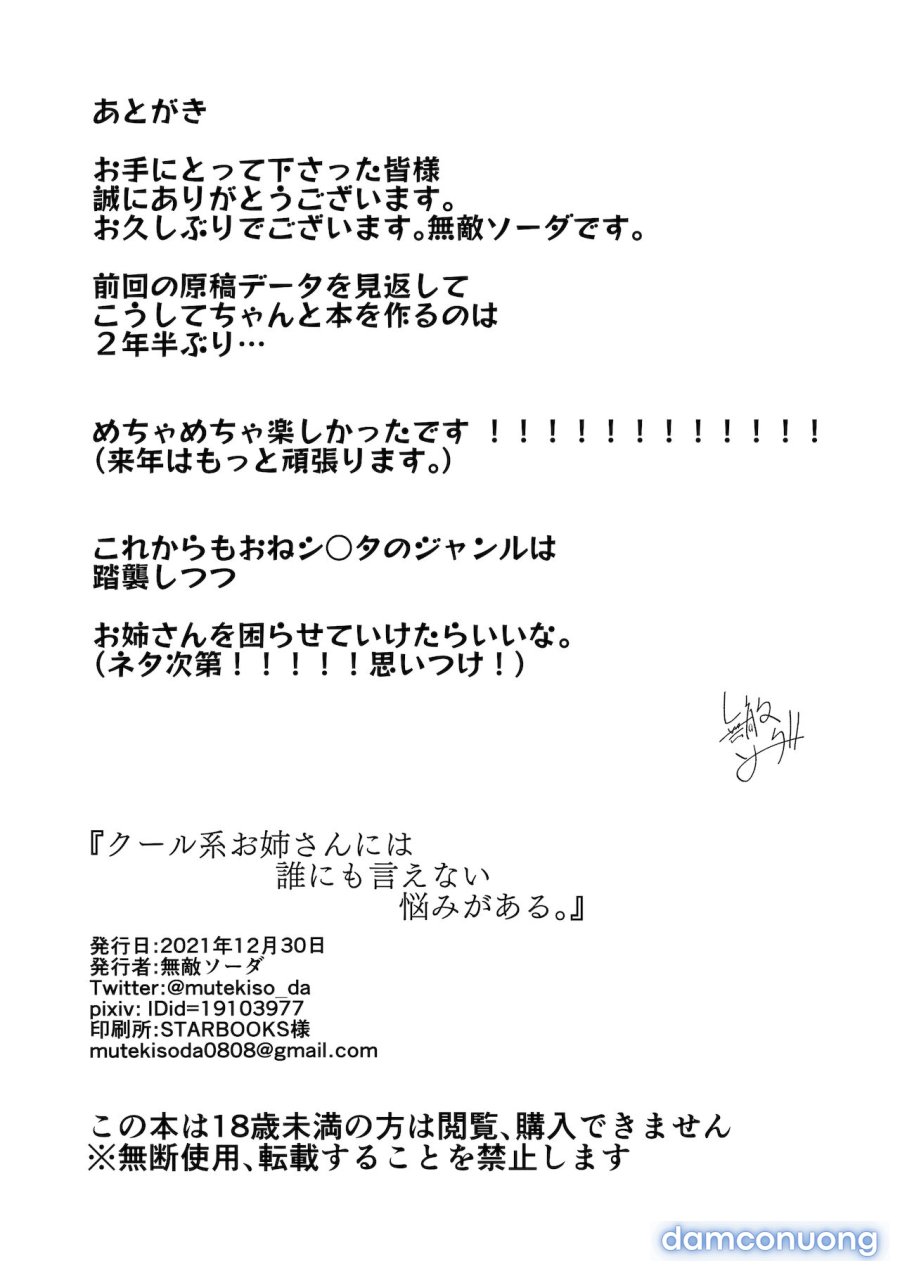 あとがき
お手にとって下さった皆様
誠にありがとうございます。
お久しぶりでございます。無敵ソーダです。
前回の原稿データを見返して
こうしてちゃんと本を作るのは
２年半ぶり…
めちゃめちゃ楽しかったです！！！！！！！！！！！！
（来年はもっと頑張ります。）
これからもおねシ〇タのジャンルは
踏襲しつつ
お姉さんを困らせていけたらいいな。
（ネタ次第！！！！！思いつけ！）
無敵
ソーダ
『クール系お姉さんには
誰にも言えない
悩みがある。』
発行日：2021年12月30日
発行者：無敵ソーダ
Twitter:@mutekiso_da
pixiv: IDid=19103977
印刷所：STARBOOKS様
mutekisoda0808@gmail.com
この本は18歳未満の方は閲覧、購入できません
※無断使用、転載することを禁止します
damconuong